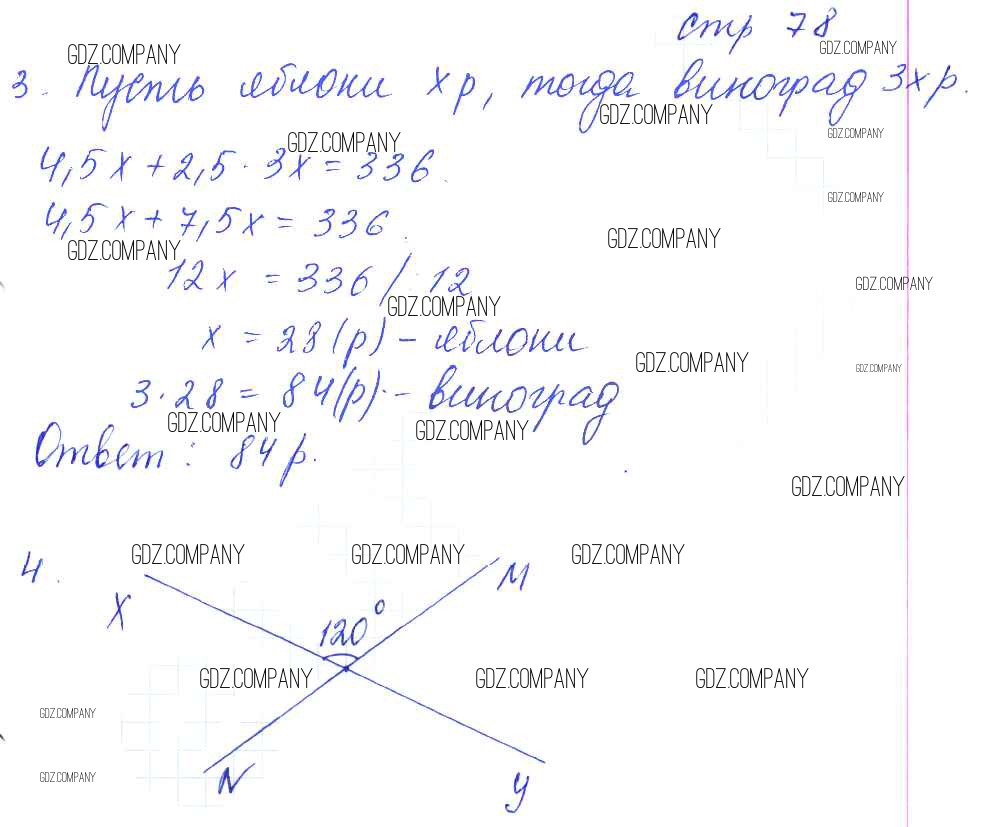 стр 78
GDZ.COMPANY GDZ.COMPANY
3. Пусть яблоки х р, тогда виноград 3х р.
GDZ.COMPANY GDZ.COMPANY GDZ.COMPANY
4,5х + 2,5 · 3х = 336.
GDZ.COMPANY
4,5х + 7,5х = 336.
GDZ.COMPANY GDZ.COMPANY
12х = 336 / : 12
GDZ.COMPANY GDZ.COMPANY
х = 28 (р) – яблоки
GDZ.COMPANY GDZ.COMPANY
3 · 28 = 84 (р) – виноград
GDZ.COMPANY GDZ.COMPANY
Ответ: 84 р.
GDZ.COMPANY
GDZ.COMPANY GDZ.COMPANY GDZ.COMPANY
4.
X M
120°
GDZ.COMPANY GDZ.COMPANY GDZ.COMPANY
GDZ.COMPANY
GDZ.COMPANY
N y